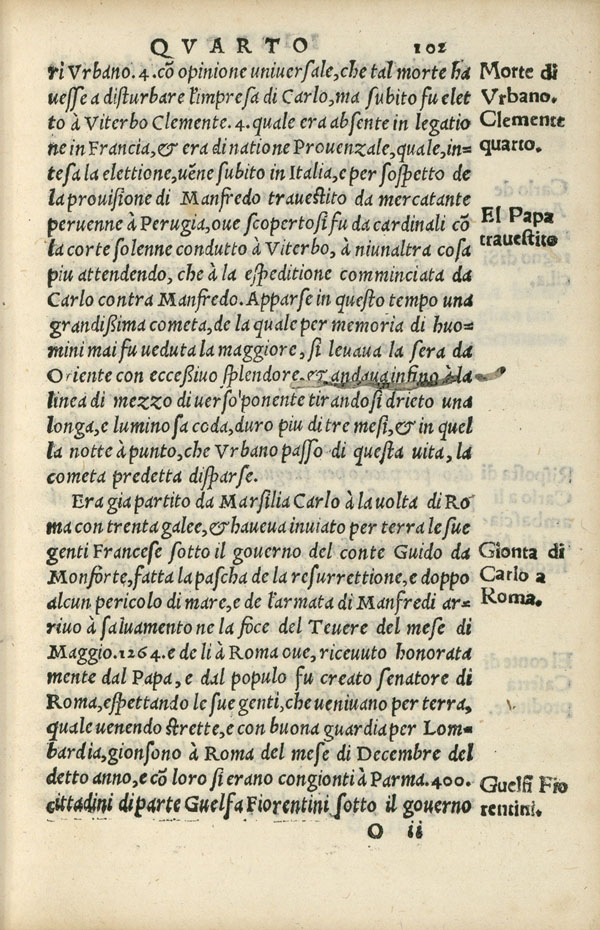 QVARTO 102
ri Vrbano. 4. cõ opinione uniuersale, che tal morte ha
uesse a disturbare l'impresa di Carlo, ma subito fu elet
to à Viterbo Clemente. 4. quale era absente in legatio
ne in Francia, & era di natione Prouenzale, quale, in-
tesa la elettione, uẽne subito in Italia, e per sospetto de
la prouisione di Manfredo trauestito da mercatante
peruenne à Perugia, oue scopertosi fu da cardinali cõ
la corte solenne condutto à Viterbo, à niunaltra cosa
piu attendendo, che à la espeditione comminciata da
Carlo contra Manfredo. Apparse in questo tempo una
grandißima cometa, de la quale per memoria di huo-
mini mai fu ueduta la maggiore, si leuaua la sera da
Oriente con ecceßiuo splendore. & andaua infino à la
linea di mezzo di uerso 'ponente tirandosi drieto una
longa, e luminosa coda, duro piu di tre mesi, & in quel
la notte à punto, che Vrbano passo di questa uita, la
cometa predetta disparse.
Era gia partito da Marsilia Carlo à la uolta di Ro
ma con trenta galee, & haueua inuiato per terra le sue
genti Francese sotto il gouerno del conte Guido da
Monforte, fatta la pascha de la resurrettione, e doppo
alcun pericolo di mare, e de l'armata di Manfredi ar-
riuo à saluamento ne la foce del Teuere del mese di
Maggio. 1264. e de li à Roma oue, riceuuto honorata
mente dal Papa, e dal populo fu creato senatore di
Roma, espettando le sue genti, che ueniuano per terra,
quale uenendo strette, e con buona guardia per Lom-
bardia, gionsono à Roma del mese di Decembre del
detto anno, e cõ loro si erano congionti à Parma. 400.
cittadini di parte Guelfa Fiorentini sotto il gouerno
O ii
Morte di
Vrbano.
Clemente
quarto.
El Papa
trauestito
Gionta di
Carlo a
Roma.
Guelfi Fio
rentini.